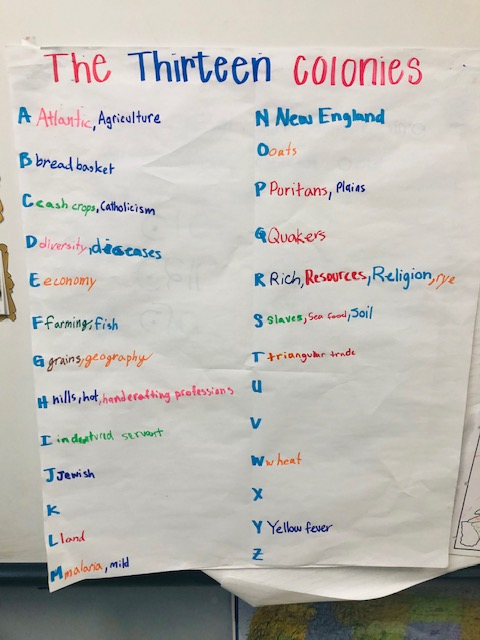 The Thirteen Colonies
A Atlantic, Agriculture
B bread basket
C cash crops, Catholicism
D diversity, diseases
E economy
F farming, fish
G grains, geography
H hills, hot, handcrafting professions
I indentured servant
J Jewish
K
L land
M malaria, mild
N New England
O oats
P Puritans, Plains
Q Quakers
R Rich, Resources, Religion, rye
S slaves, Sea food, Soil
T triangular trade
U
V
W wheat
X
Y Yellow fever
Z